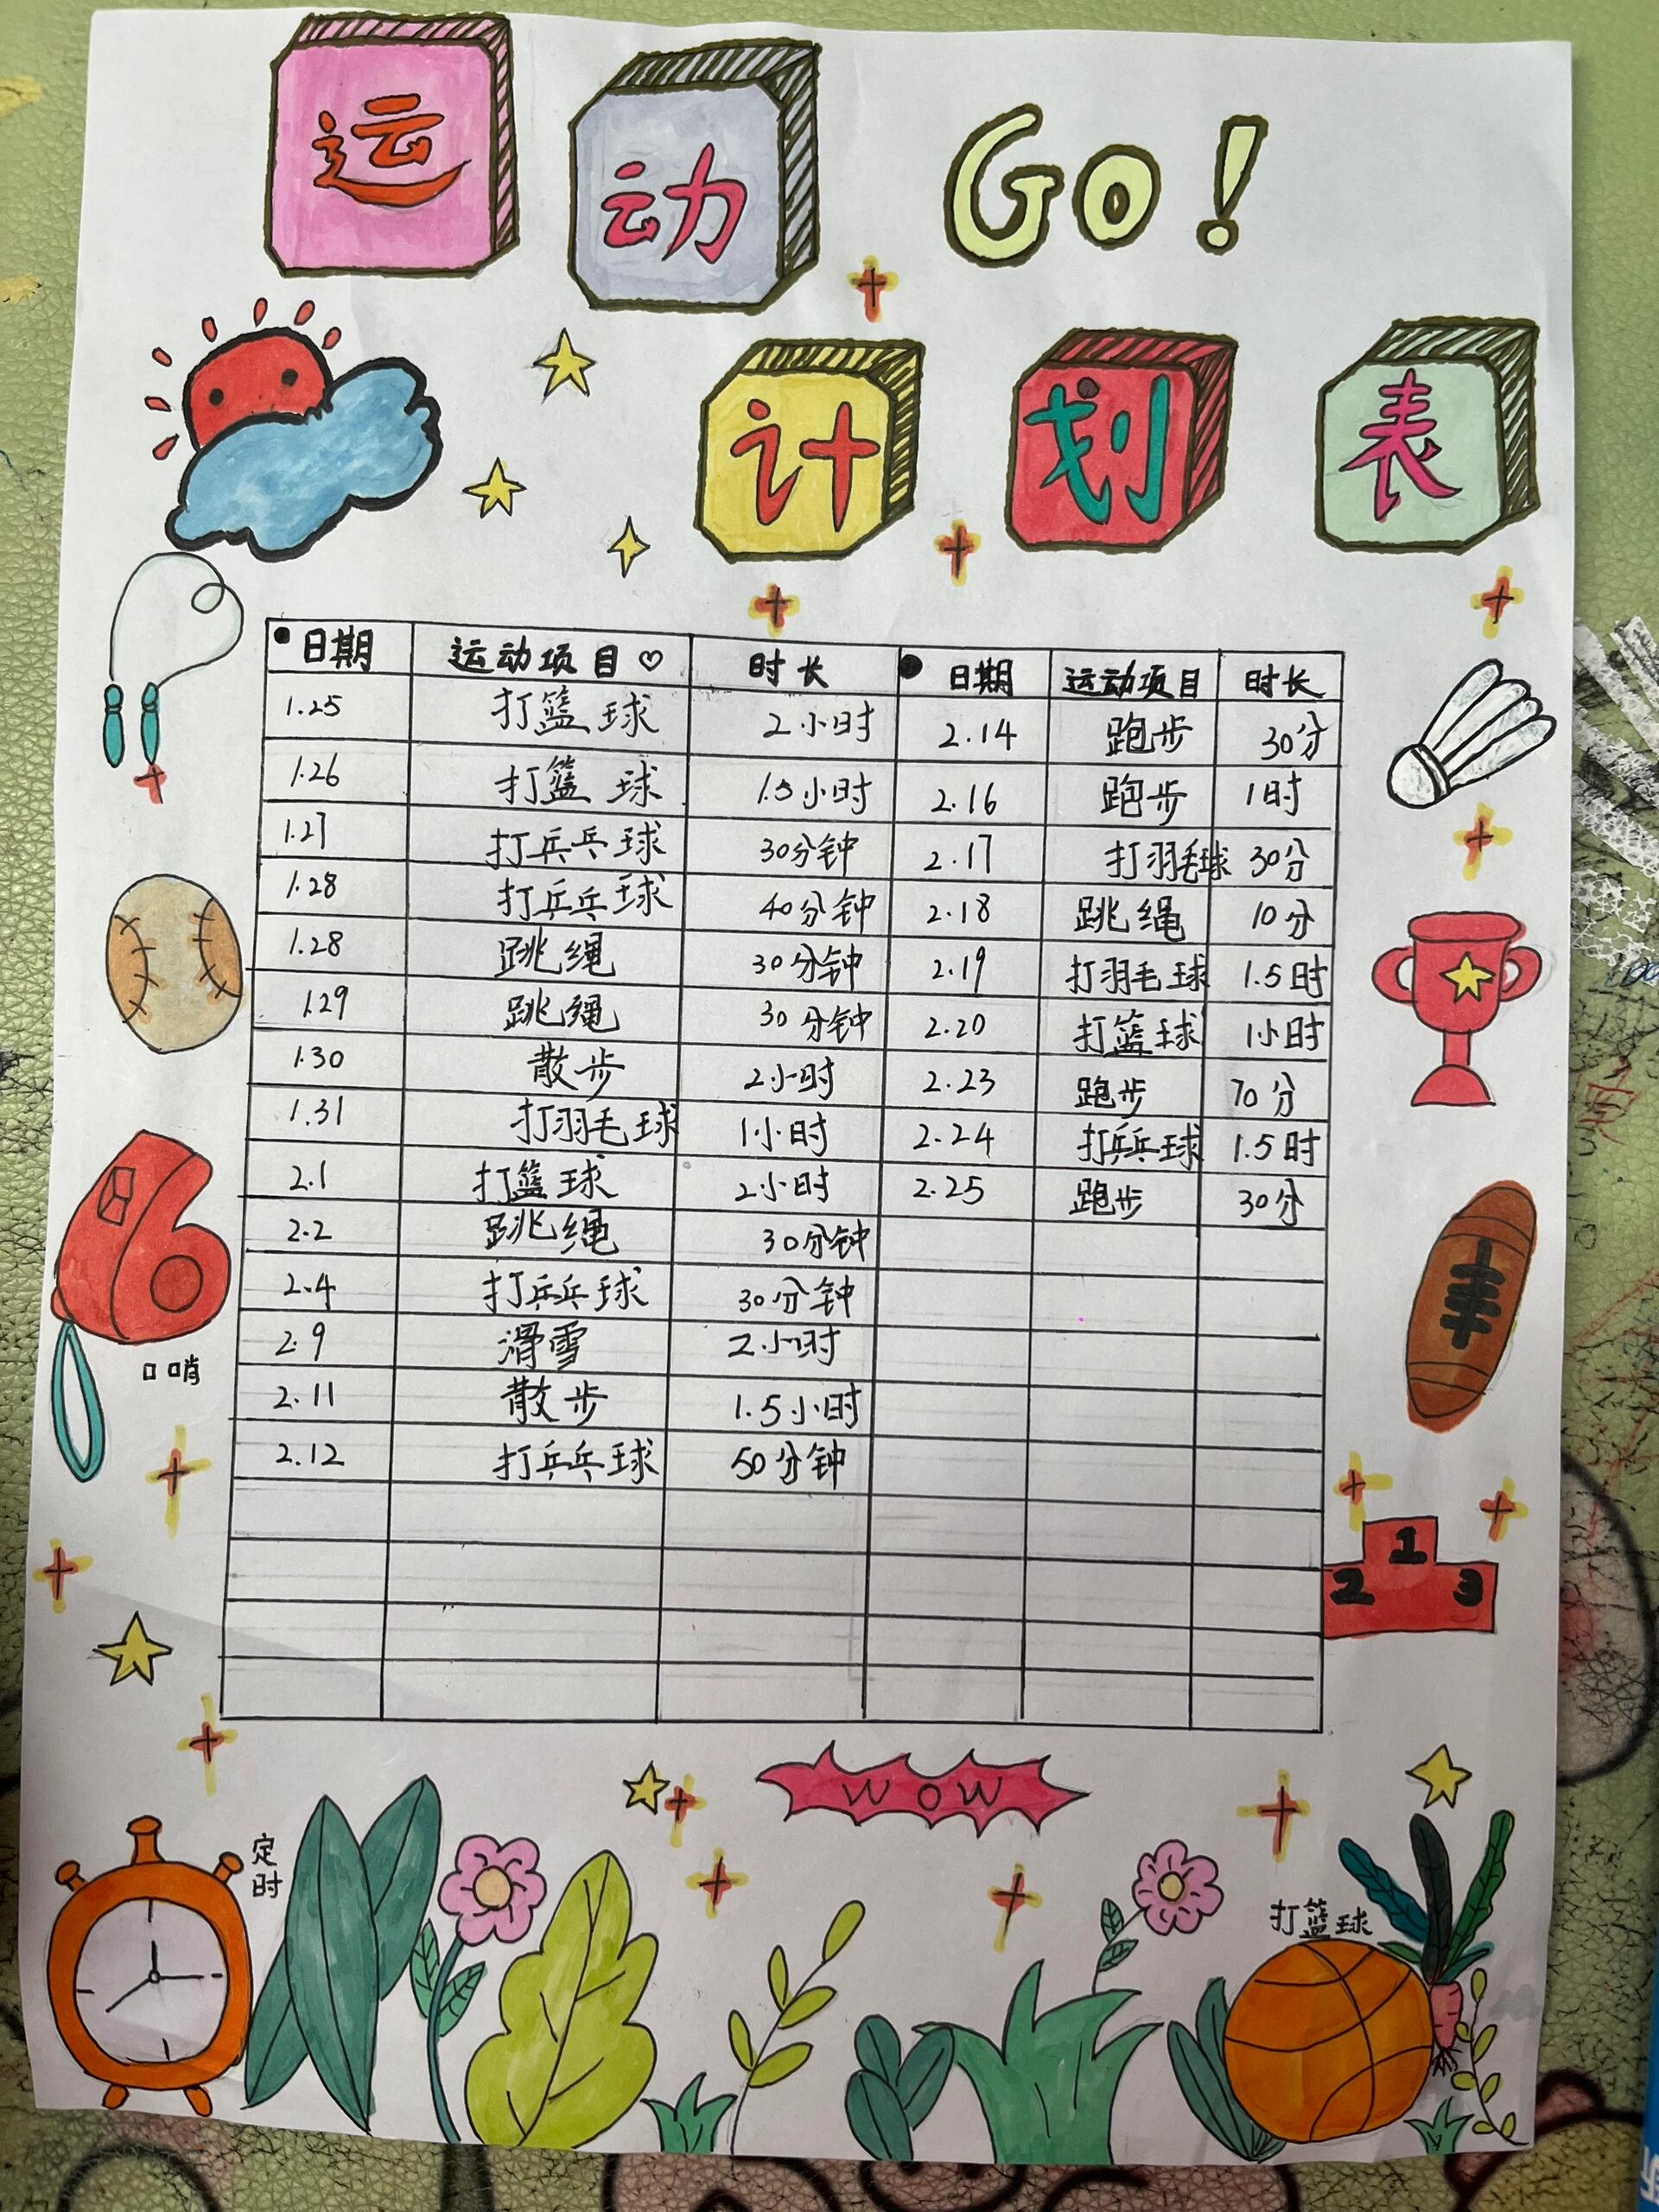 运动 Go!
计划表
日期 运动项目♡ 时长 日期 运动项目 时长
1.25 打篮球 2小时 2.14 跑步 30分
1.26 打篮球 1.5小时 2.16 跑步 1时
1.27 打乒乓球 30分钟 2.17 打羽毛球 30分
1.28 打乒乓球 40分钟 2.18 跳绳 10分
1.28 跳绳 30分钟 2.19 打羽毛球 1.5时
1.29 跳绳 30分钟 2.20 打篮球 1小时
1.30 散步 2小时 2.23 跑步 70分
1.31 打羽毛球 1小时 2.24 打乒乓球 1.5时
2.1 打篮球 2小时 2.25 跑步 30分
2.2 跳绳 30分钟
2.4 打乒乓球 30分钟
2.9 滑雪 2小时
2.11 散步 1.5小时
2.12 打乒乓球 50分钟
口哨
1
2 3
WOW
定时
打篮球